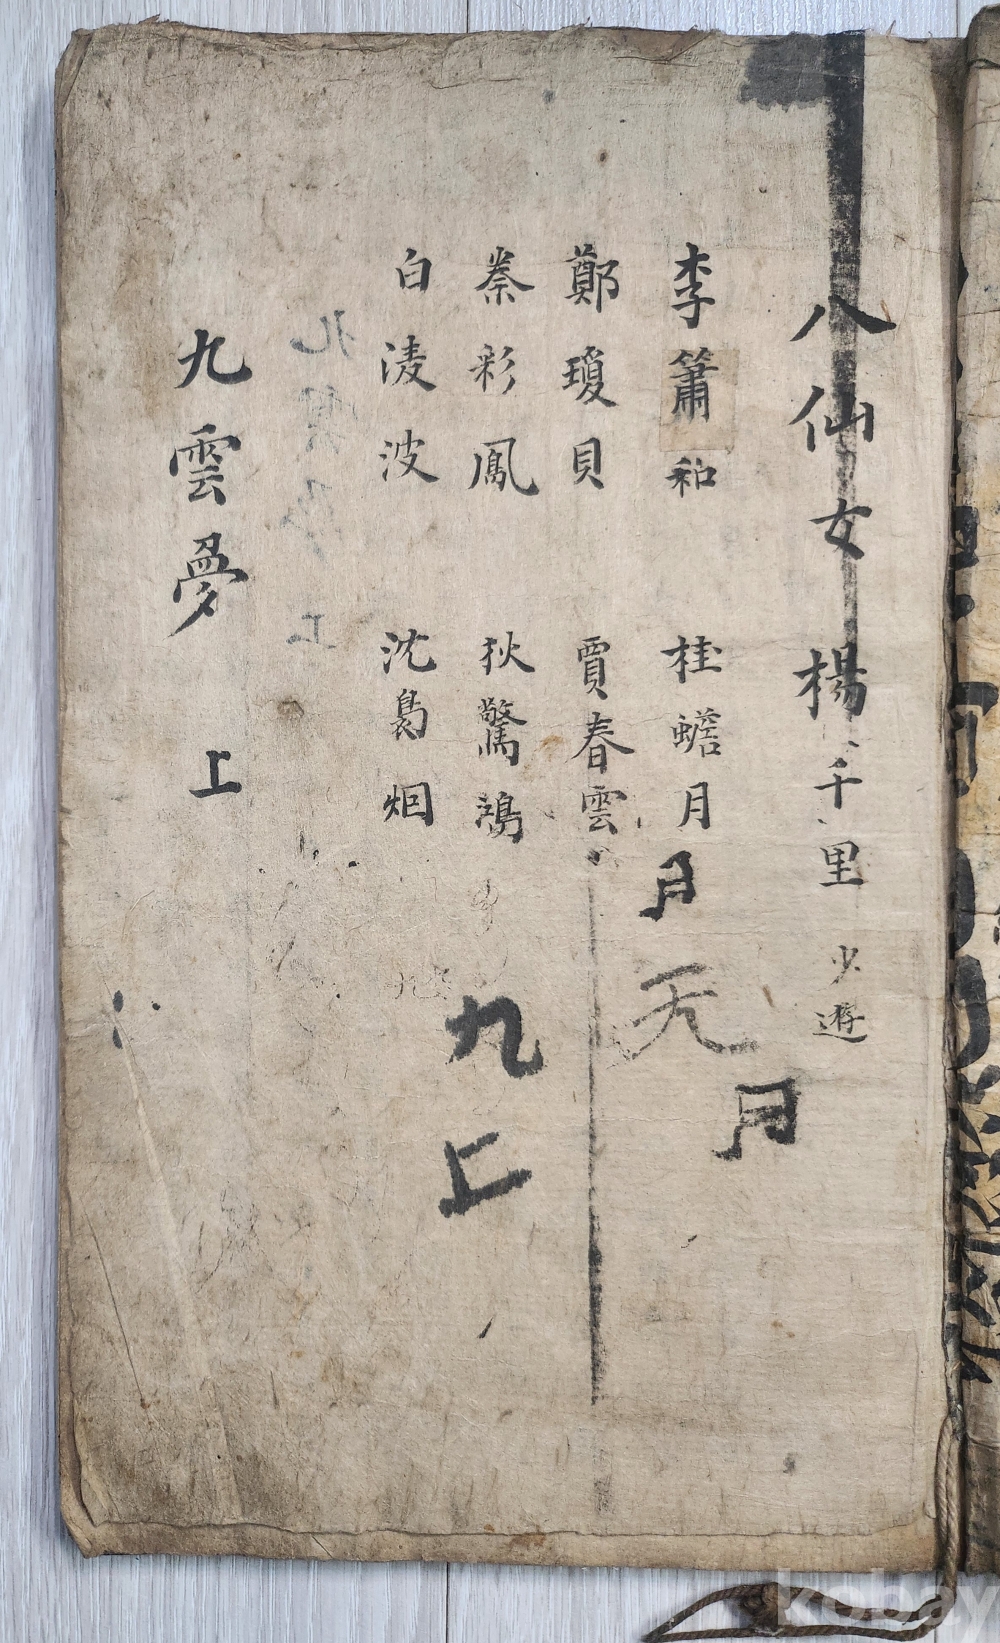 八仙女 楊千里 少遊
李簫和 桂蟾月
月
天
月
鄭瓊貝 賈春雲
秦彩鳳 狄驚鴻
九上
白淩波 沈裊烟
九雲夢 上
kobay